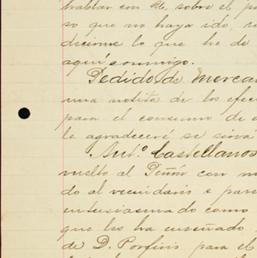 hablar con Ud. sobre el p
so que no haya ido, 
dicime lo que he de
aquí conmigo.
Pedido de Merca
una notita de los efec
para el consumo de
le agradeceré se sirva
Ant.º Castellanos
vuelto al Peñón con
do al vecindario e
entusiasmado como
que les ha enseñado
de D. Porfirio para el